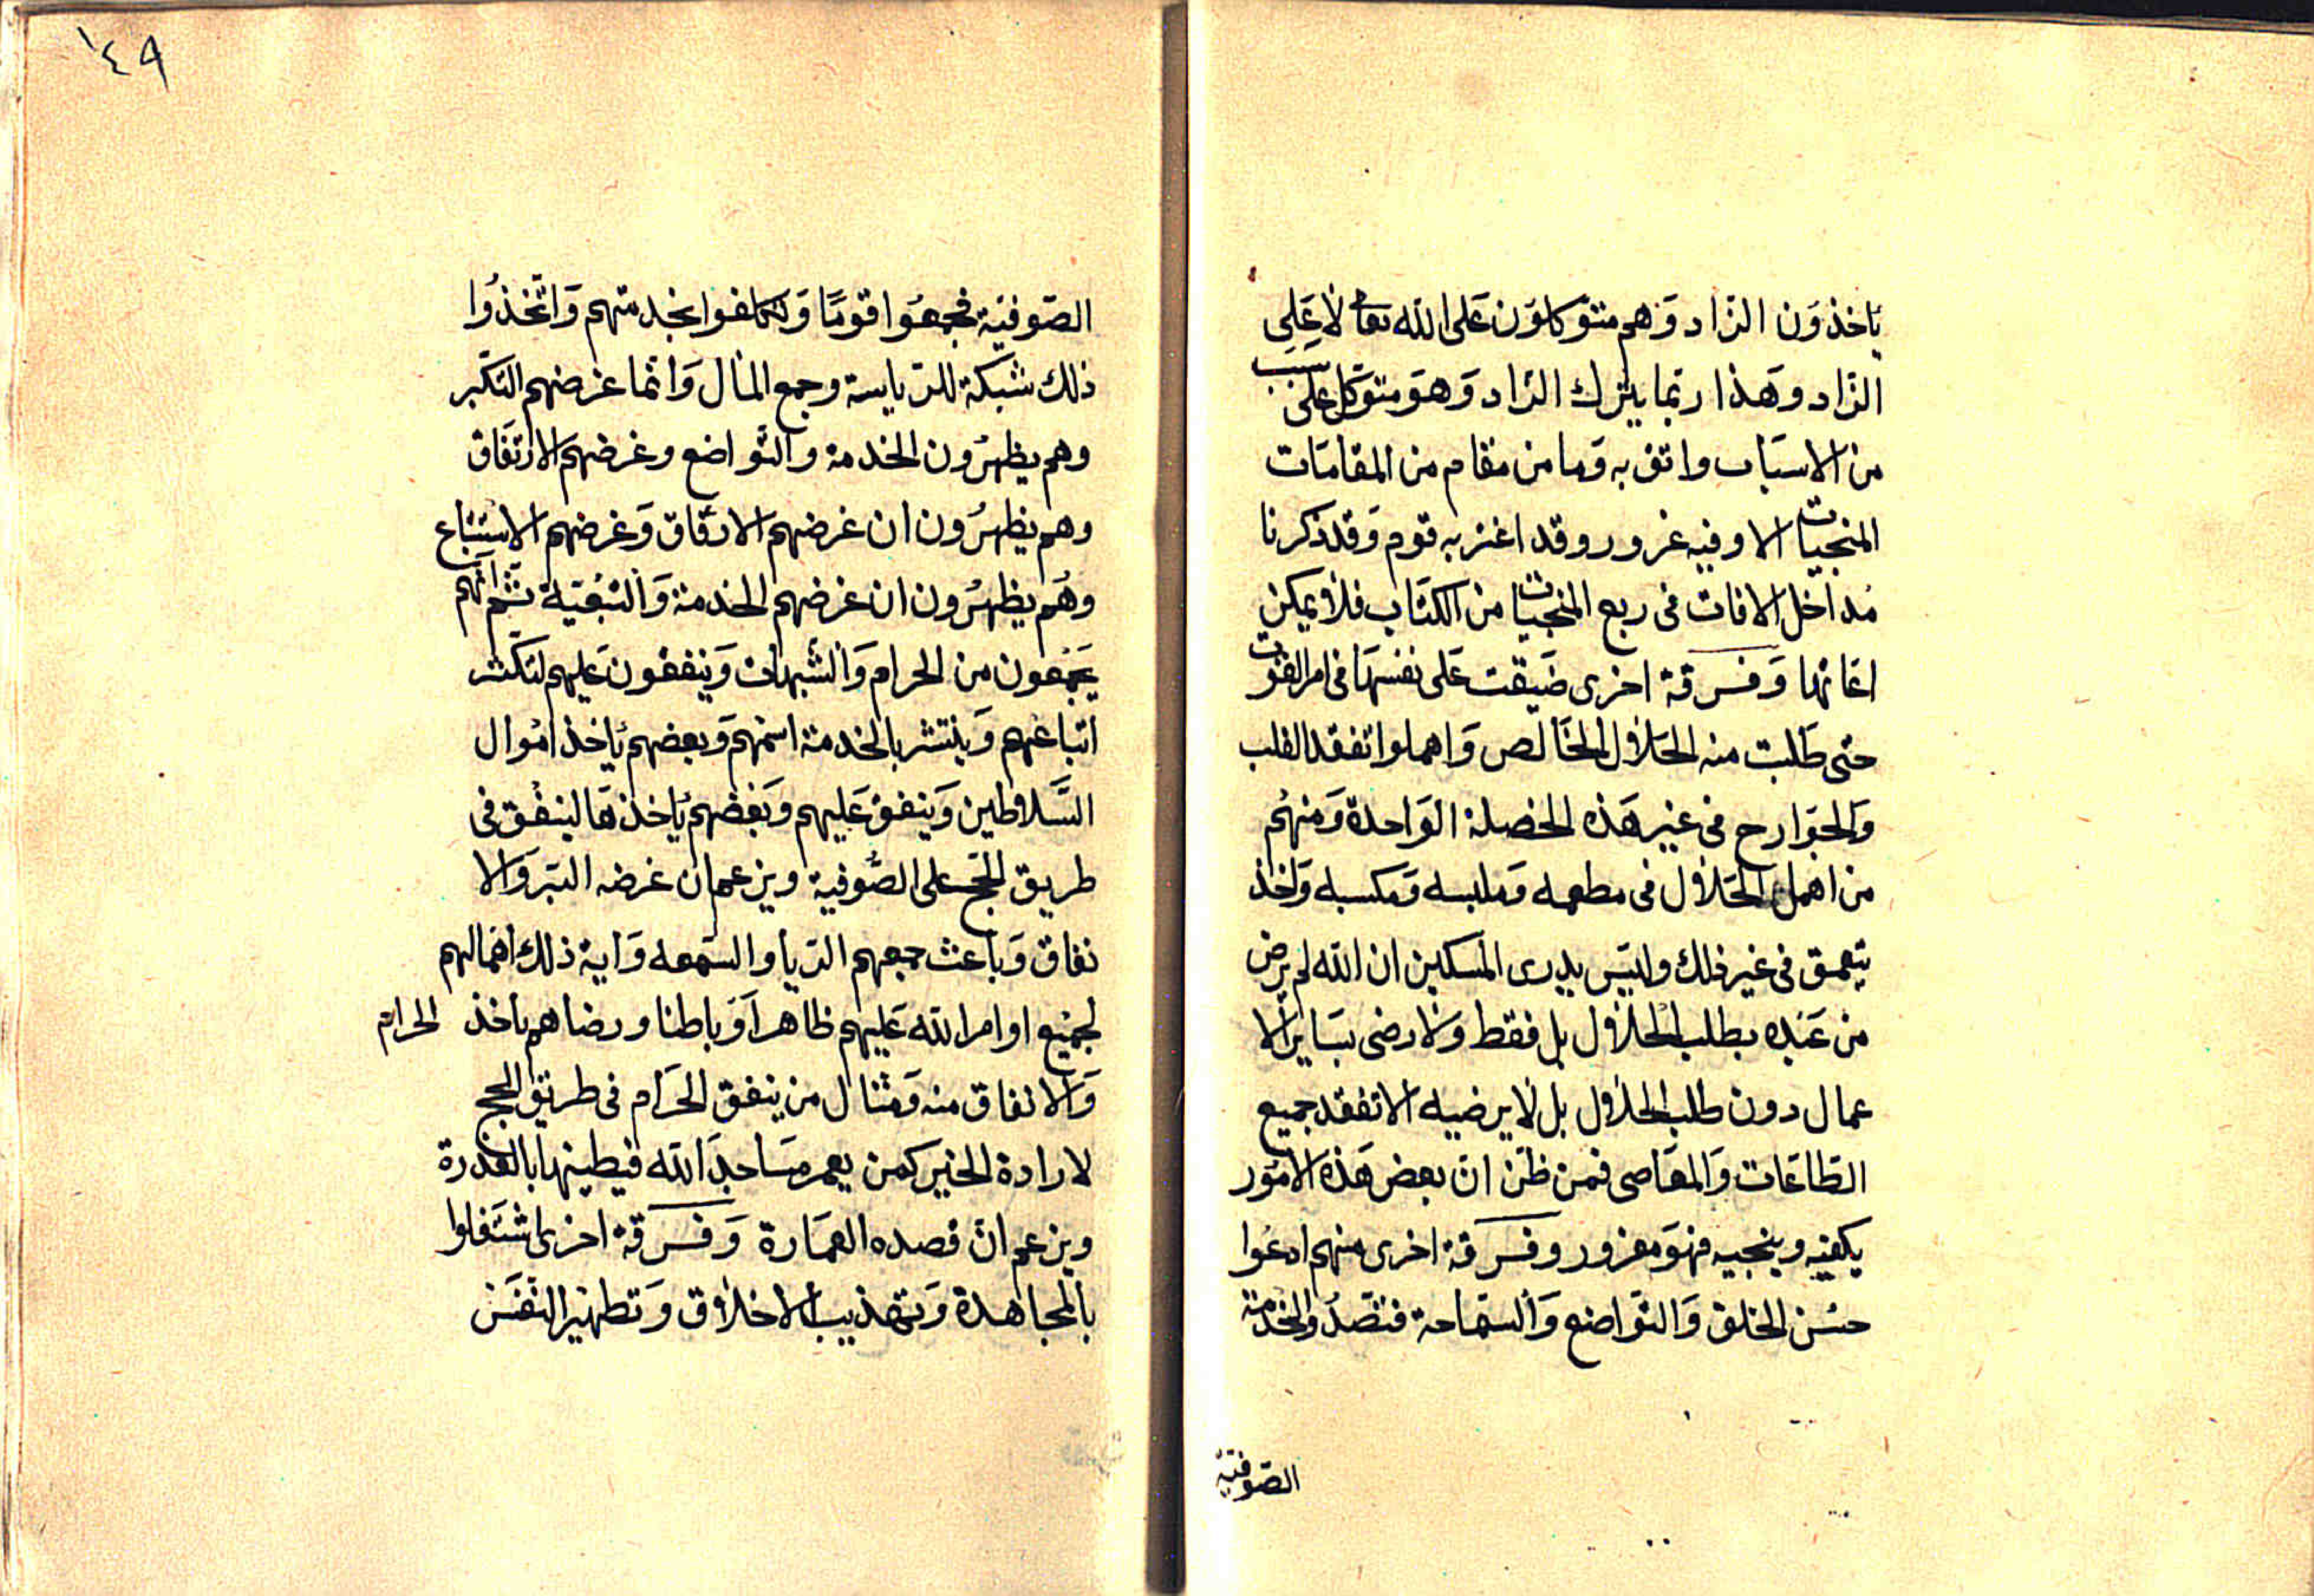 ياخذون الزاد وهم متوكلون على الله تعالى لا على
الزاد وهذا ربما يترك الزاد وهو متوكل على سبب
من الاسباب واثق به وما من مقام من المقامات
المنجيات الا وفيه غرور وقد اغتر به قوم وقد ذكرنا
مداخل الافات فى ربع المنجيات من الكتاب فلا يمكن
اعانها وفرقة اخرى ضيقت على نفسها فى امر القوت
حتى طلبت منه الحلال الخالص واهملوا تفقد القلب
والجوارح فى غير هذه الخصلة الواحدة ومنهم
من اهمل الحلال فى مطعمه وملبسه ومكسبه واخذ
يتعمق فى غير ذلك وليس يدرى المسكين ان الله لم يرض
من عبده بطلب الحلال بل فقط ولا رضى بساير الا
عمال دون طلب الحلال بل لا يرضيه الا تفقد جميع
الطاعات والمعاصى فمن ظن ان بعض هذه الامور
يكفيه وينجيه فهو مغرور وفرقة اخرى منهم ادعوا
حسن الخلق والتواضع والسماحة فتصدوا لخدمة
الصوفية
١٤٩
الصوفية فجمعوا قوما وتكلفوا بخدمتهم واتخذوا
ذلك شبكة للرياسة وجمع المال وانما غرضهم التكبر
وهم يظهرون الخدمة والتواضع وغرضهم الارتفاق
وهم يظهرون ان غرضهم الارفاق وغرضهم الاستتباع
وهم يظهرون ان غرضهم الخدمة والتبعية ثم انهم
يجمعون من الحرام والشبهات وينفقون عليهم لتكثر
اتباعهم وينتشر بالخدمة اسمهم وبعضهم ياخذ اموال
السلاطين وينفق عليهم وبعضهم ياخذها لينفق فى
طريق الحج على الصوفية ويزعم ان غرضه البر والا
نفاق وباعث جميعهم الريا والسمعه واية ذلك اهمالهم
لجميع اوامر الله عليهم ظاهرا وباطنا ورضاهم باخذ الحرام
والانفاق منه ومثال من ينفق الحرام فى طريق الحج
لارادة الخير كمن يعمر مساجد الله فيطينها بالعذرة
ويزعم ان قصده العمارة وفرقة اخرى اشتغلوا
بالمجاهدة وتهذيب الاخلاق وتطهير النفس